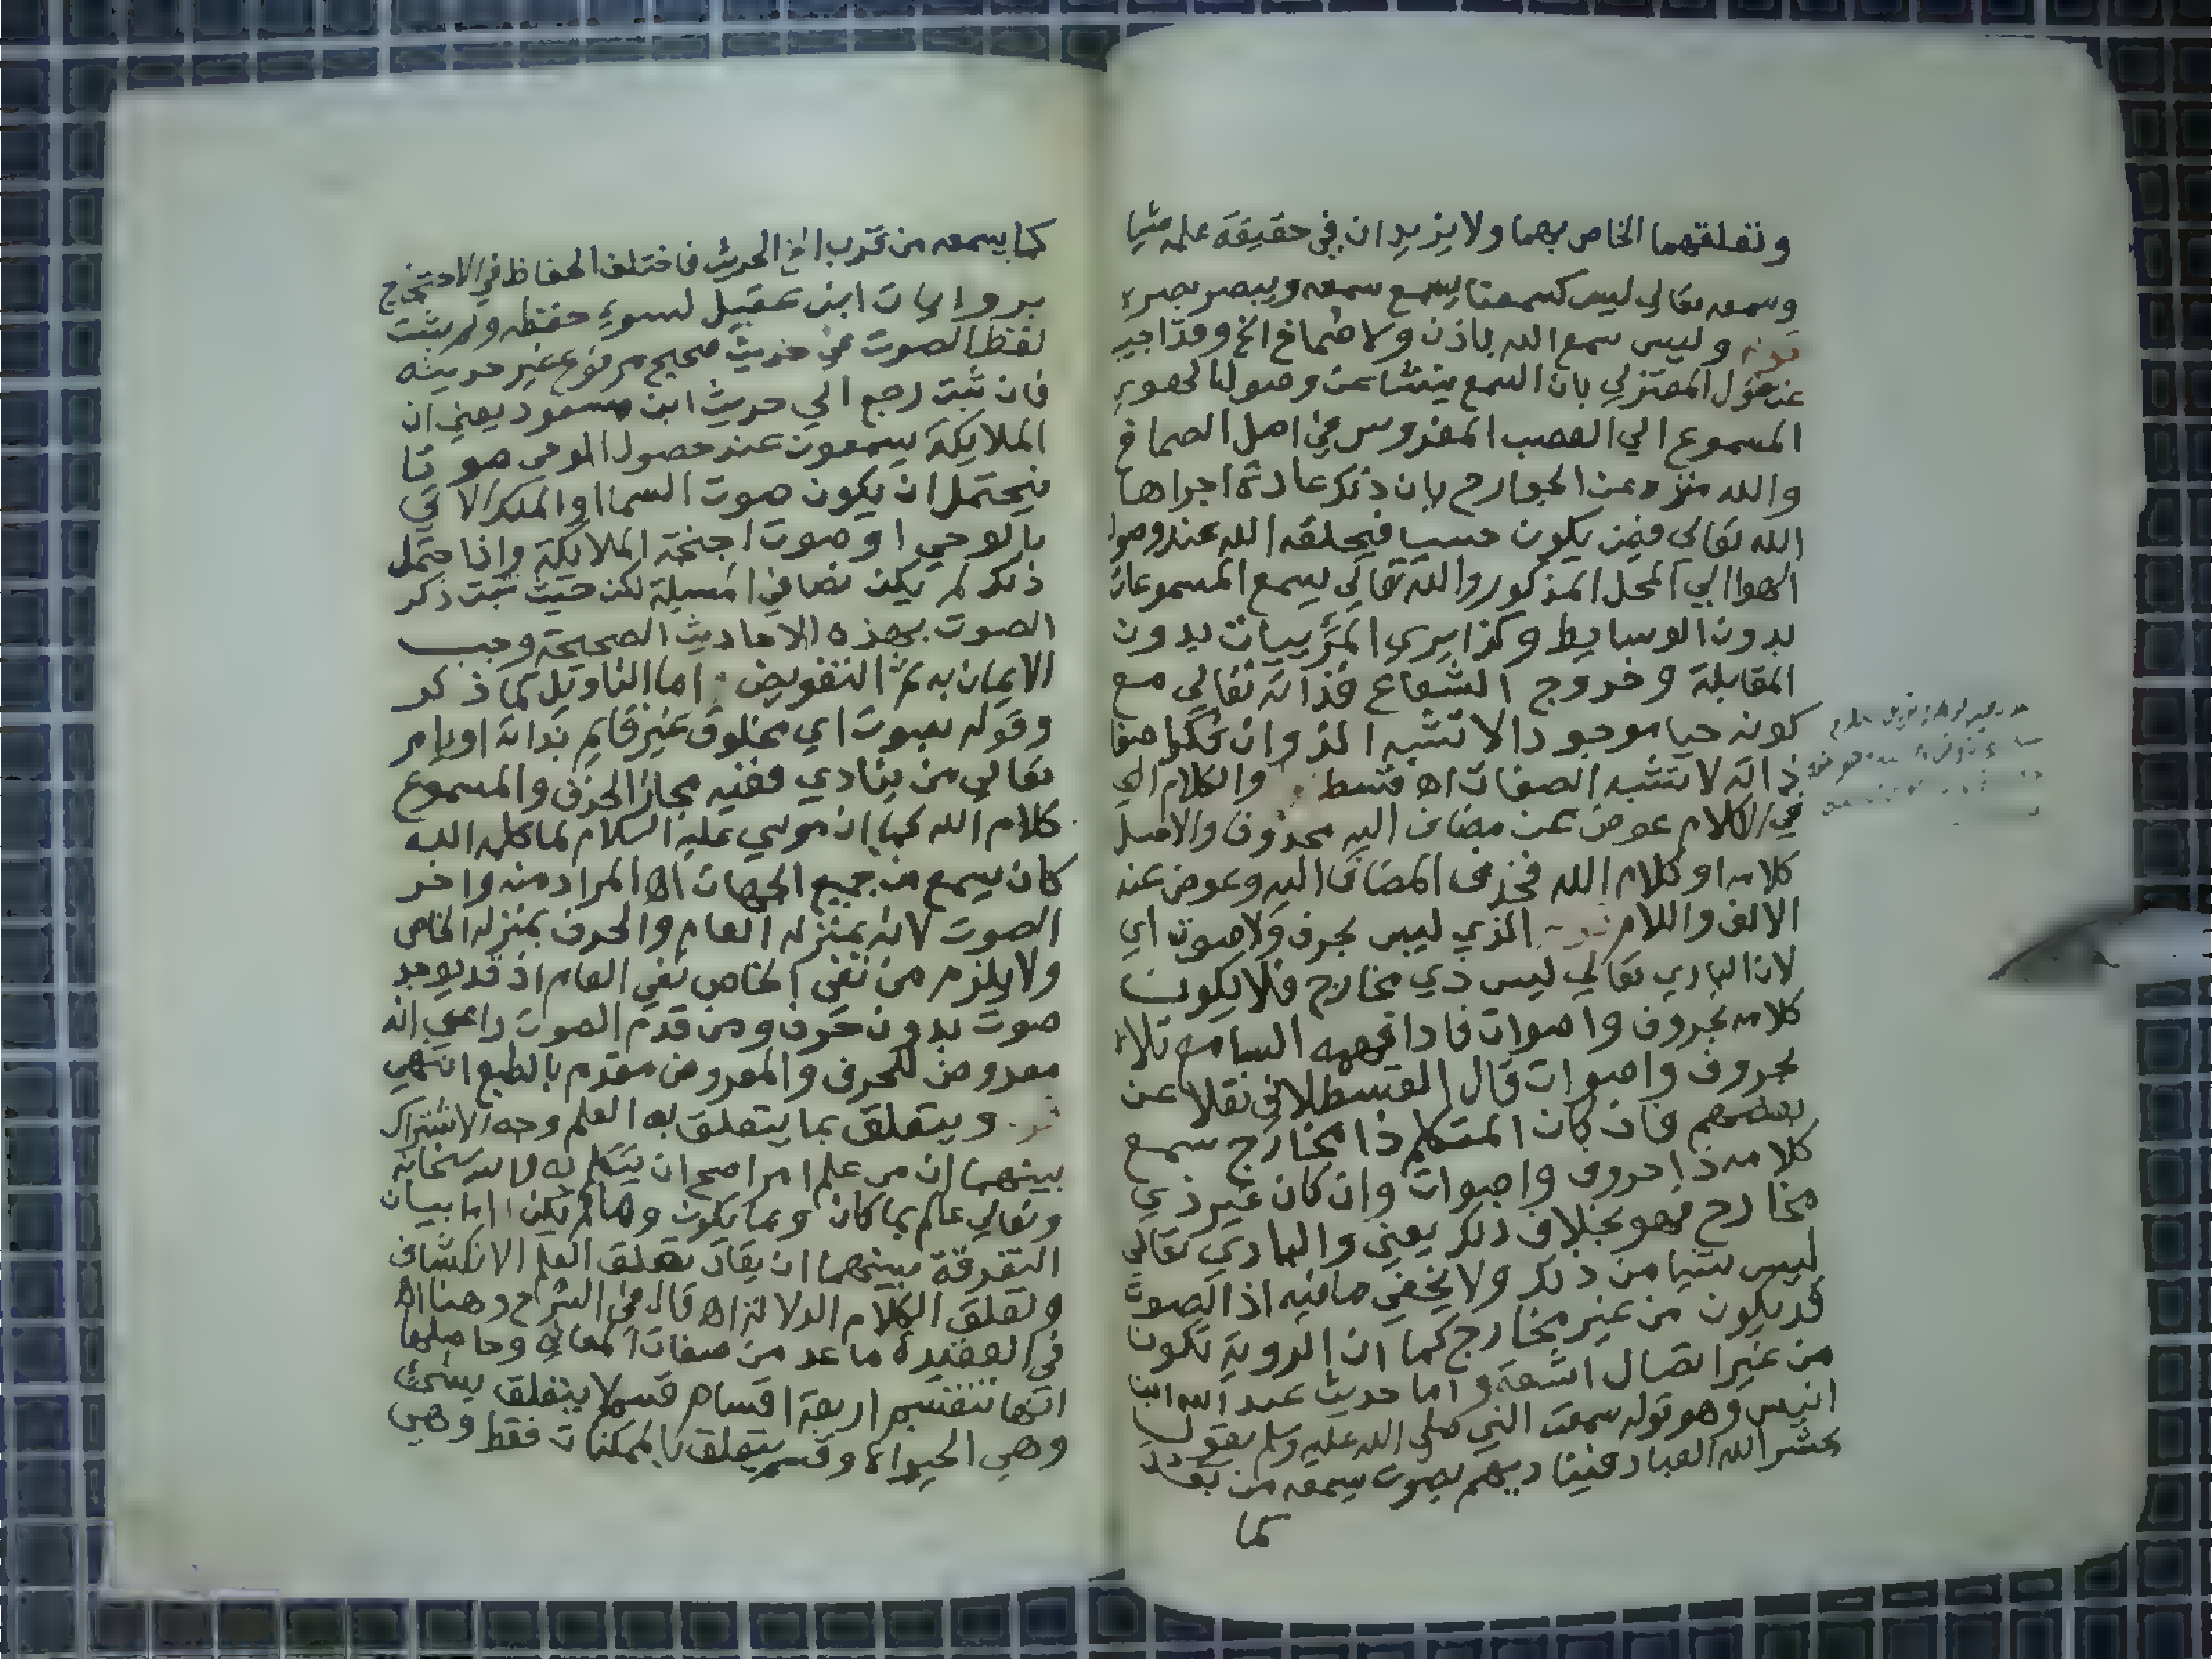 وتعلقهما الخاص بهما ولا يزيدان في حقيقة علمه شيا
وسمعه تعالي ليس كسمعنا يسمع سمعه ويبصر بصره
قوله وليس سمع الله باذن ولا صماخ الخ وقد اجيب
عن قول المعتزلي بان السمع ينشا عن وصول الهوي
المسموع الي العصب المفروس في اصل الصماخ
والله منزه عن الجوارح بان ذلك عادة اجراها
الله تعالي فيمن يكون حيا فيخلقه الله عند وصول
الهوا الي المحل المذكور والله تعالي يسمع المسموعات
بدون الوسايط وكذا يري المرييات بدون
المقابلة وخروج الشعاع فذاته تعالي مع
كونه حيا موجودا لا تشبه الذوات فكذا صفات
ذاته لا تشبه الصفات اه قسط والكلام ال
في الكلام عوض عن مضاف اليه محذوف والاصل
كلامه او كلام الله فحذف المضاف اليه وعوض عنه
الالف واللام قوله الذي ليس بحرف ولا صوت اي
لان الباري تعالي ليس ذي مخارج فلا يكون
كلامه بحروف واصوات فاذا فهمه السامع تلاه
بحروف واصوات قال القسطلاني نقلا عن
بعضهم فان كان المتكلم ذا مخارج سمع
كلامه ذا حروف واصوات وان كان غير ذي
مخارج فهو بخلاف ذلك يعني والباري تعالي
ليس شيا من ذلك ولا يخفي ما فيه اذ الصوت
قد يكون من غير مخارج كما ان الروية تكون
من غير اتصال اشعة واما حديث عبد الله ابن
انيس وهو قوله سمعت النبي صلي الله عليه وسلم يقول
يحشر الله العباد فيناديهم بصوت يسمعه من بعد
كما
كما يسمعه من قرب الخ الحديث فاختلف الحفاظ في الاحتجاج
بروايات ابن عقيل لسوء حفظه ولم يثبت
لفظ الصوت في حديث صحيح مرفوع غير حديثه
فان ثبت رجع الي حديث ابن مسعود يعني ان
الملايكة يسمعون عند حصول الوحي صوتا
فيحتمل ان يكون صوت السما او الملك الاتي
بالوحي او صوت اجنحة الملايكة واذا احتمل
ذلك لم يكن نصا في المسيلة لكن حيث ثبت ذكر
الصوت بهذه الاحاديث الصحيحة وجب
الايمان به ثم التفويض اما التاويل كما ذكر
وقوله بصوت اي مخلوق غير قايم بذاته او يامر
تعالي من ينادي ففيه مجاز الحذف والمسموع
كلام الله كما ان موسي عليه السلام لما كلمه الله
كان يسمع من جميع الجهات اه المراد منه واخر
الصوت لانه بمنزله العام والحرف بمنزله الخاص
ولا يلزم من نفي الخاص نفي العام اذ قد يوجد
صوت بدون حرف ومن قدم الصوت راعي انه
معروض للحرف والمعروض مقدم بالطبع انتهي
قوله ويتعلق بما يتعلق به العلم وجه الاشتراك
بينهما ان من علم امرا صح ان يتكلم به والله سبحانه
وتعالي عالم بما كان وبما يكون وما لم يكن اما بيان
التفرقة بينهما ان يقال تعلق العلم الانكشاف
وتعلق الكلام الدلالة اه قال في الشرح وهنا اه
في العقيدة ما عد من صفات المعاني وحاصلها
انها تنقسم اربعة اقسام قسم لا يتعلق بشيئ
وهي الحيواة وقسم يتعلق بالممكنات فقط وهي